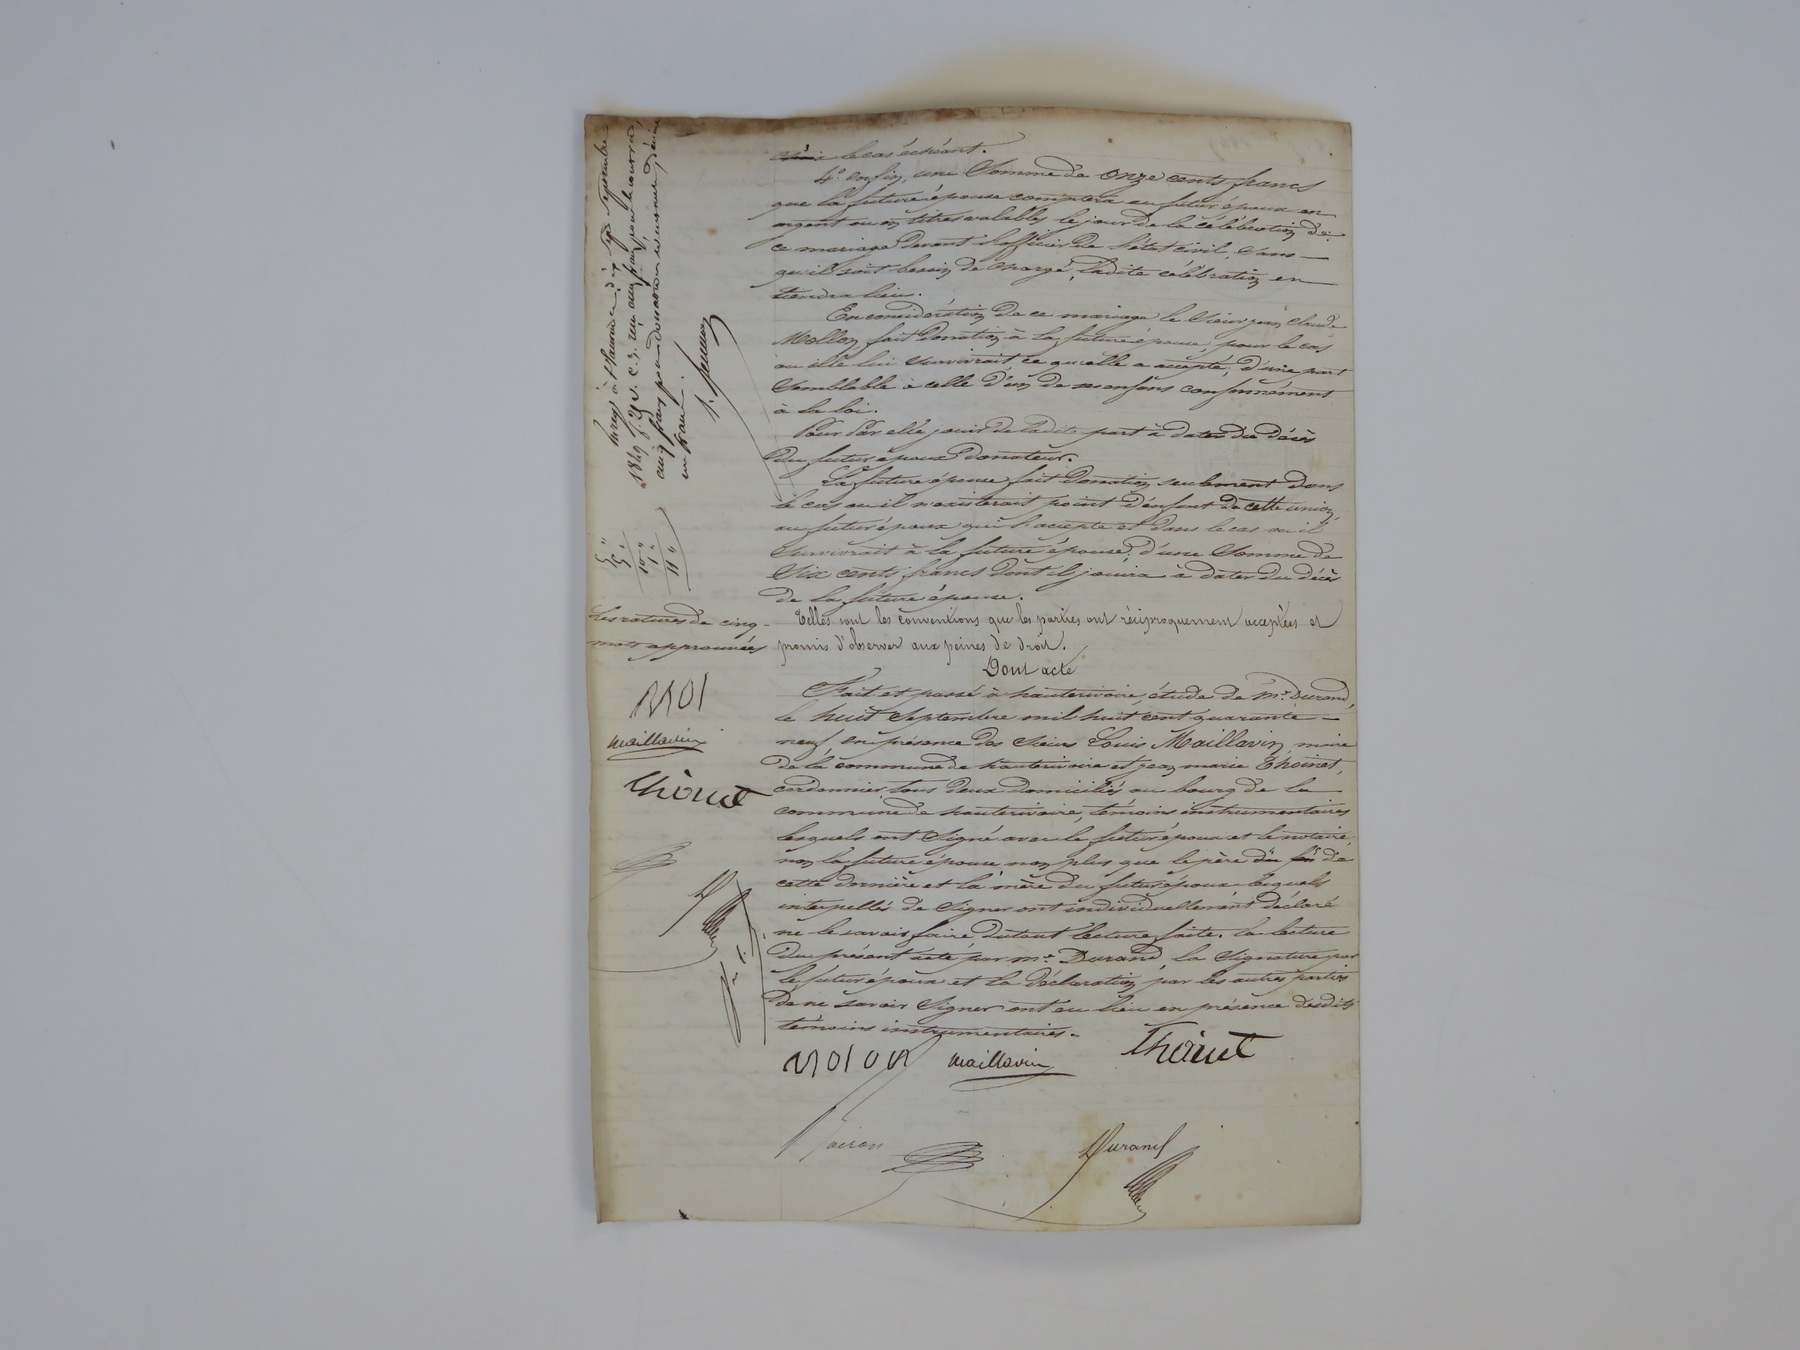 le cas échéant.
4° enfin, une Somme de onze cents francs
que la future épouse comptera au futur époux en
argent ou en titres valables le jour de la célébration de
ce mariage devant l'officier de l'état civil, sans
qu'il soit besoin de charge, ladite célébration en
tiendra lieu.
En considération de ce mariage le Sieur jean Claude
Mollon fait Donation à la future épouse, pour le cas
ou elle lui survivrait ce qu'elle a accepté, d'une part
Semblable à celle d'un de ses enfans conformément
à la loi.
Pour Par elle jouir de ladite part à dater du décès
du futur époux Donateur.
La future épouse fait Donation seulement dans
le cas ou il n'existerait point d'enfant de cette union,
au futur époux qui l'accepte et dans le cas ou il
Survivrait à la future épouse, d'une Somme de
Six cents francs Dont il jouira à dater du décès
de la future épouse.
Telles sont les conventions que les parties ont réciproquement acceptées et
promis d'observer aux peines de droit.
Dont acte
Fait et passé à hauterivoire, étude de Me Durand,
le huit Septembre mil huit cent quarante
neuf, en présence des Sieurs Louis Maillavin, maire
de la commune de hauterivoire et jean marie Thoinet,
cordonnier, tous deux domiciliés au bourg de la
commune de hauterivoire, témoins instrumentaires
lesquels ont Signé avec le futur époux et le notaire,
non la future épouse non plus que le père de
cette dernière et la mère du futur époux lesquels
interpellés de Signer ont individuellement déclaré
ne le savoir faire dutout lecture faite. la lecture
du présent acte par me Durand, la Signature par
le futur époux et la déclaration par les autres parties
de ne savoir Signer ont eu lieu en présence desdits
témoins instrumentaires.
Maillavin Thoinet
Durand
Les ratures de cinq
mots approuvées
Maillavin
Thoinet
5 "
5 "
10 "
1 "
11 "
Septembre
1849
cinq francs pour donation
un franc.